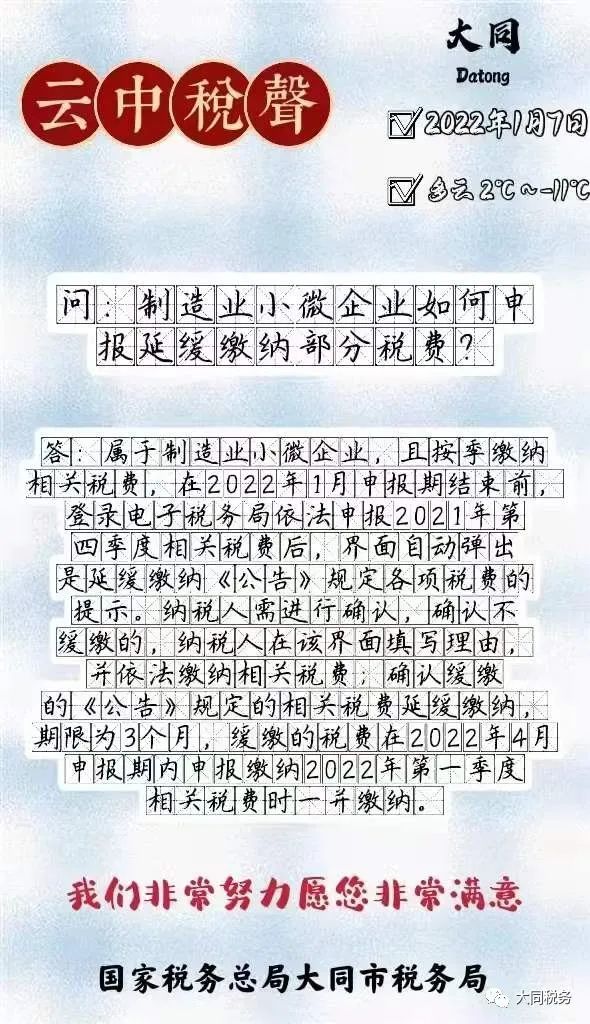 大同
Datong
云中税聲
2022年1月7日
多云 2℃～-11℃
问：制造业小微企业如何申
报延缓缴纳部分税费？
答：属于制造业小微企业，且按季缴纳
相关税费，在2022年1月申报期结束前，
登录电子税务局依法申报2021年第
四季度相关税费后，界面自动弹出
是延缓缴纳《公告》规定各项税费的
提示。纳税人需进行确认，确认不
缓缴的，纳税人在该界面填写理由，
并依法缴纳相关税费；确认缓缴
的《公告》规定的相关税费延缓缴纳，
期限为3个月，缓缴的税费在2022年4月
申报期内申报缴纳2022年第一季度
相关税费时一并缴纳。
我们非常努力愿您非常满意
国家税务总局大同市税务局
大同税务